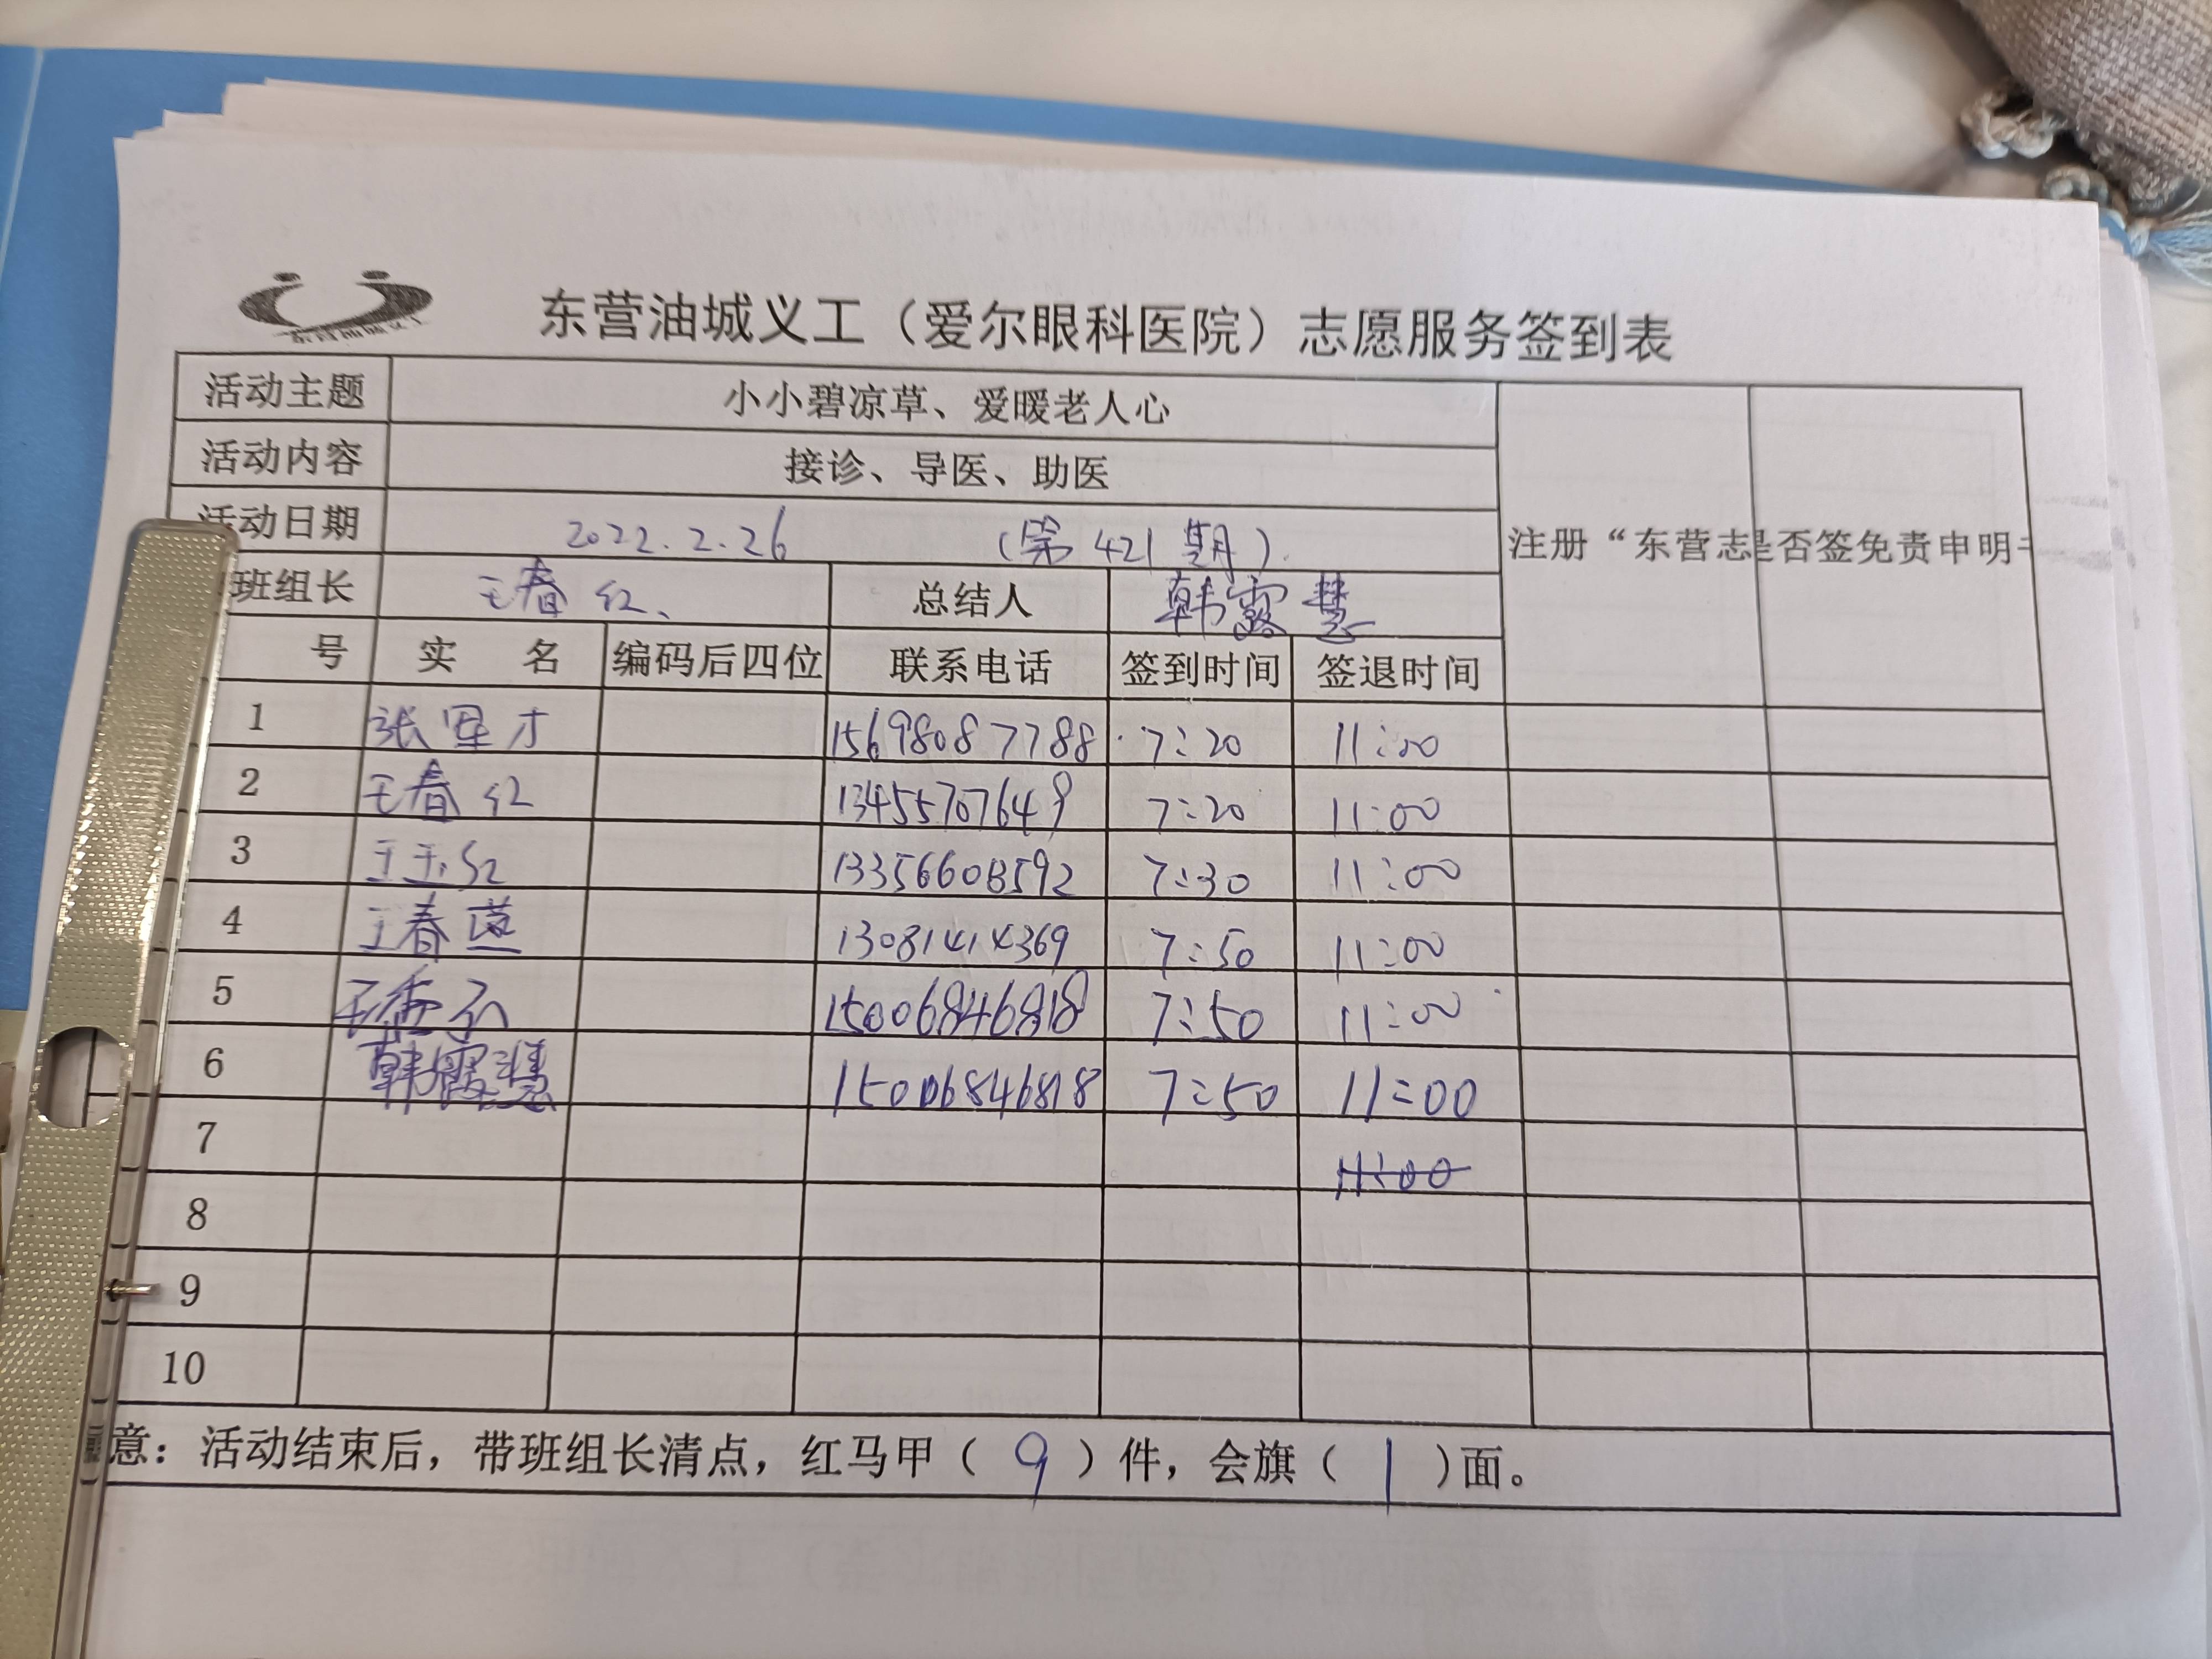 东营油城义工（爱尔眼科医院）志愿服务签到表
活动主题 小小碧凉草、爱暖老人心
活动内容 接诊、导医、助医
活动日期 2022.2.26 （第421期）
注册“东营志 是否签免责申明书
班组长 王春红、 总结人 韩露慧
号 实 名 编码后四位 联系电话 签到时间 签退时间
1 张军才 15698087788 7:20 11:00
2 王春红 13455707649 7:20 11:00
3 王玉红 13356603592 7:30 11:00
4 王春莲 13081414369 7:50 11:00
5 15006846818 7:50 11:00
6 韩露慧 15006846818 7:50 11:00
7 11:00
8
9
10
意：活动结束后，带班组长清点，红马甲（ 9 ）件，会旗（ 1 )面。